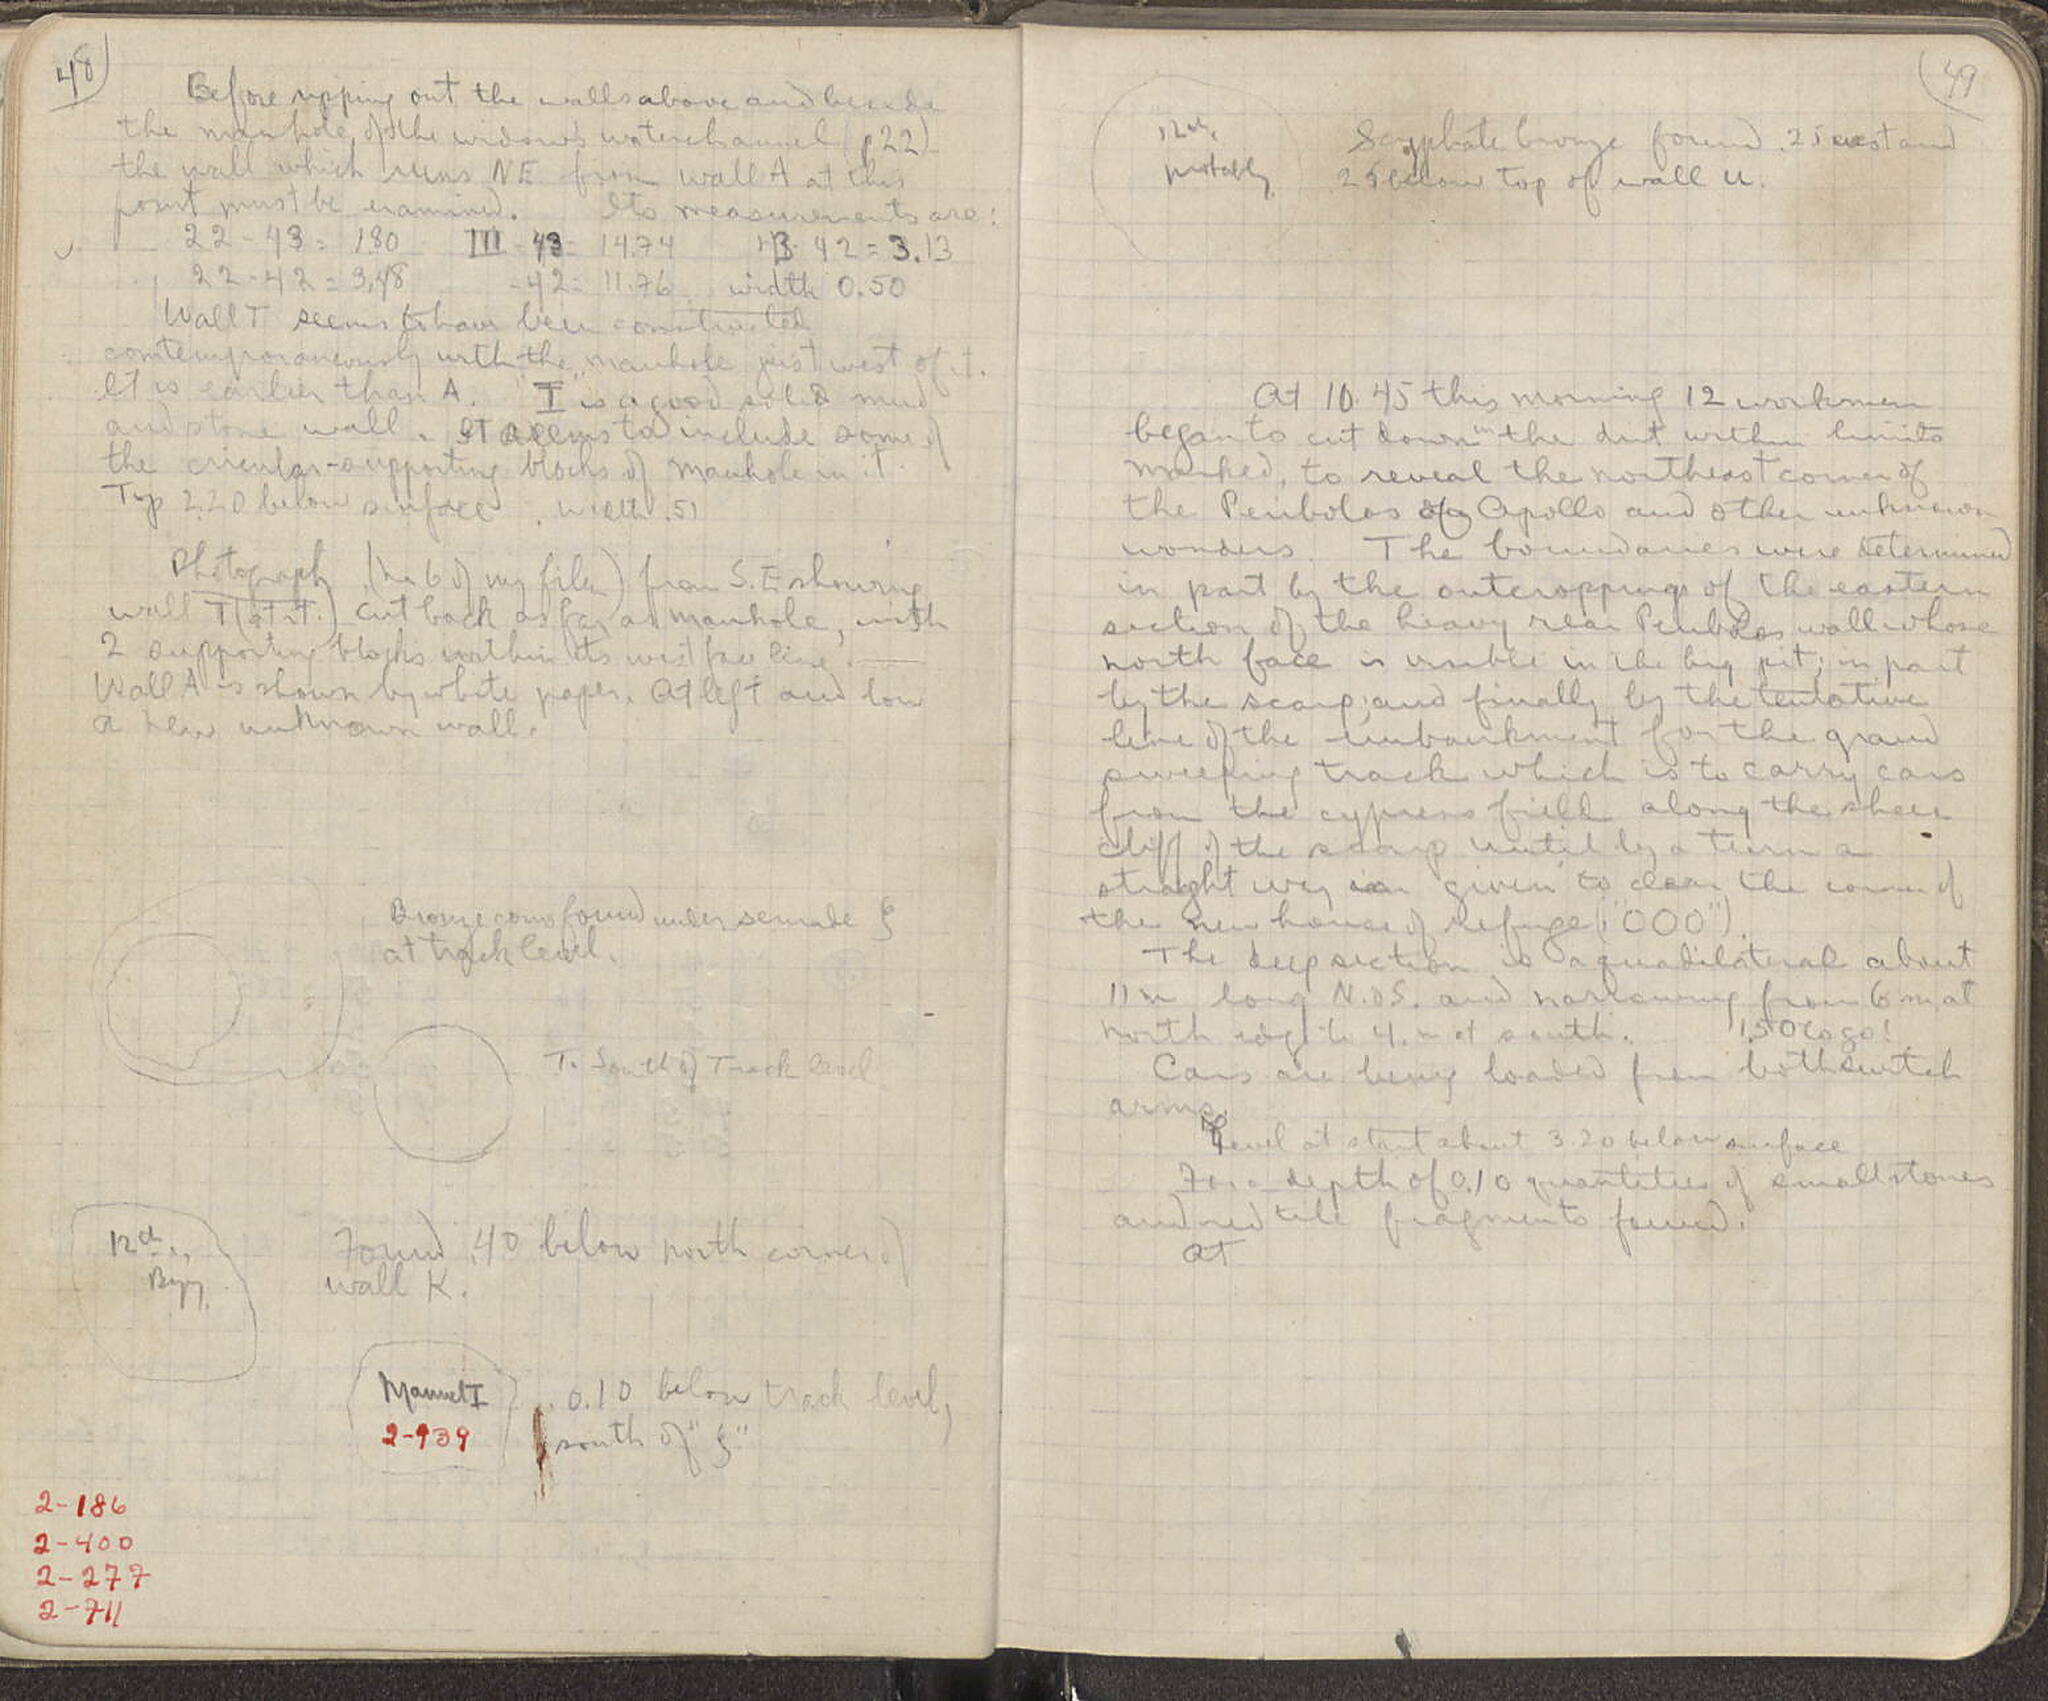 48
Before ripping out the walls above and beside
the manhole of the widow's waterchannel (p 22)
the wall which runs NE from wall A at this
point must be examined. Its measurements are:
22 - 43 = 180 III - 43 = 14.74 42 = 3.13
22 - 42 = 3.48 - 42 = 11.76 width 0.50
Wall T seems to have been constructed
comtemporaneously with the manhole just west of it.
It is earlier than A. "T" is a good solid mud
and stone wall. It seems to include some of
the circular-supporting blocks of manhole in it.
Top 2.20 below surface. width .51
Photograph (no 6 of my film) from S.E showing
wall T (at rt.) cut back as far as manhole, with
2 supporting blocks within its west face line.
Wall A is shown by white paper. At left and low
a new unknown wall.
Bronze coins found under ξ
at track level.
T. South of Track level
12th c.
Byz.
Found .40 below north corner of
wall K.
Manuel I
2-939
0.10 below track level,
south of "ξ"
2-186
2-400
2-277
2-711
49
12th
probably
Scyphate bronze found .25 west and
25 below top of wall U.
At 10.45 this morning 12 workmen
began to cut down in the dirt within limits
marked, to reveal the northeast corner of
the Peribolos of Apollo and other unknown
wonders. The boundaries were determined
in part by the outcroppings of the eastern
section of the heavy rear Peribolos wall whose
north face is visible in the big pit; in part
by the scarp; and finally by the tentative
line of the embankment for the grand
sweeping track which is to carry cars
from the cypress field along the sheer
cliff of the scarp until by a turn a
straight way is given to clear the corner of
the new house of refuge ("OOO").
The deep section is a quadilateral about
11 m long N. & S. and narrowing from 6 m at
north edge to 4. m at south. 1.50 to go!
Cars are being loaded from both switch
arms.
Level at start about 3.20 below surface
For a depth of 0.10 quantities of small stones
and red tile fragments found.
At